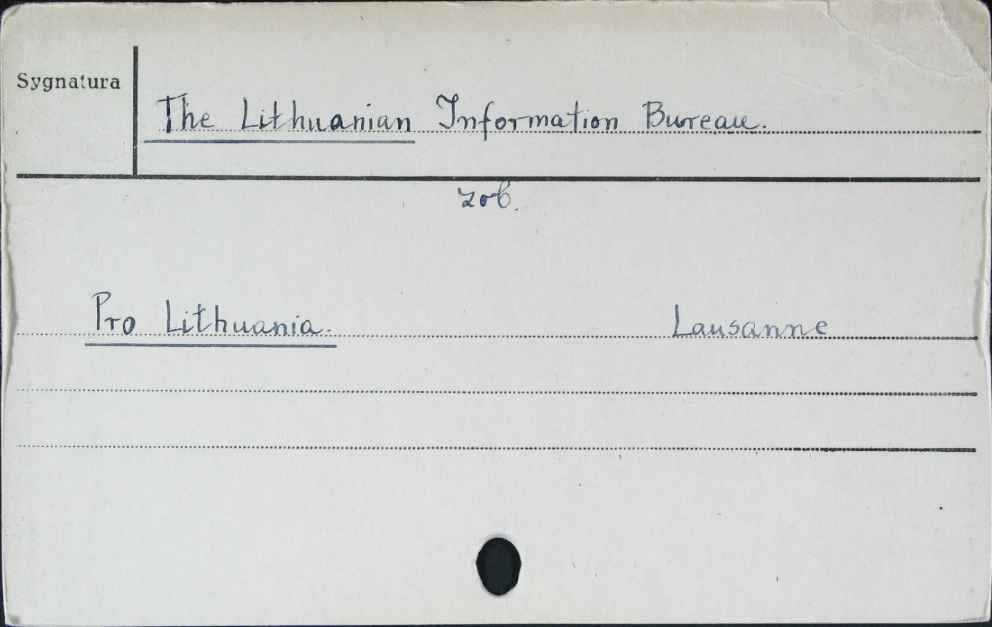 Sygnatura
The Lithuanian Information Bureau.
zob.
Pro Lithuania. Lausanne